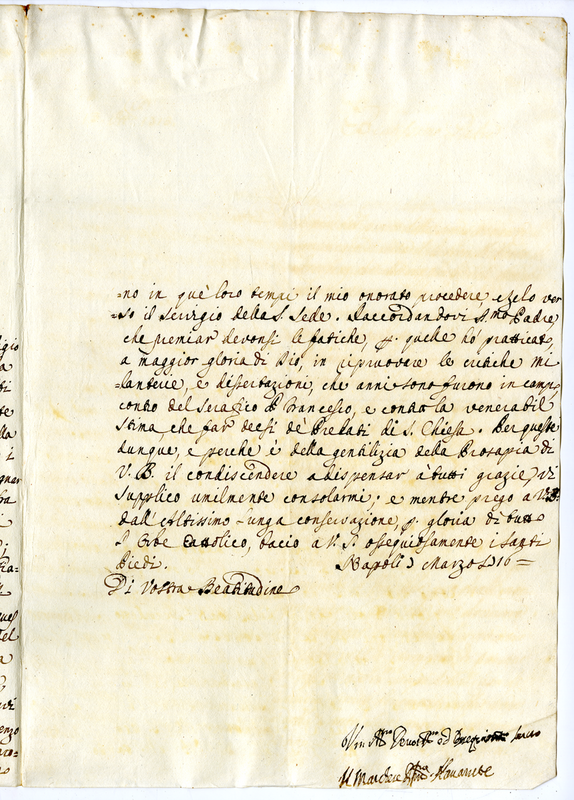 =no in que' loro tempi il mio onorato procedere, e Zelo ver
=so il Servigio della S. Sede. Raccordandovi S.mo Padre
che premiar devonsi le fatiche, p. quelle hò pratticato
a maggior gloria di Dio, in riprovare le critiche mi
lanterie, e dissertazioni, che anni sono furono in camp
contro del Serafico P. Francesco, e contro la venerabil
stima, che far deesi de' Prelati di S. Chiesa. Per queste
dunque, e perche è della gentilizia della Prosapia di
V. B. il condiscendere a dispensar à tutti grazie, vi
supplico umilmente consolarmi; e mentre prego a V. B.
dall' Altissimo lunga conservazione, p. gloria di tutto
l' Orbe Cattolico, bacio a V. S. ossequiosamente i Santi
Piedi. Napoli Marzo 16=
Di Vostra Beatitudine
Um Devot.mo ed servo
Il Marchese